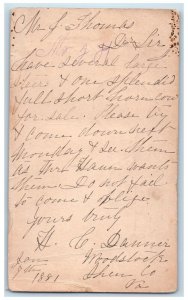 Mr. J. Thomas
Dr Sir
have several
& one splendid
full short horn cow
for sale. Please try
& come down next
Monday & see them
as Mr wants
them. Do not fail
to come & oblige
yours truly
H. C. Danner
Jan
9th
1881
Woodstock
Shen Co
Va